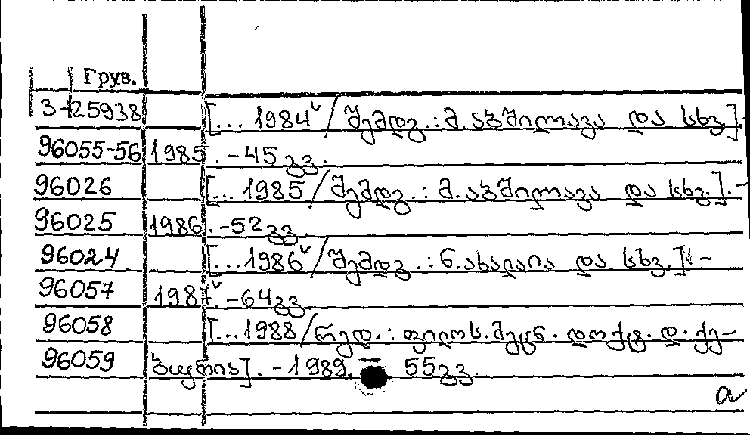 Груз.
3-125938 [... 1984 / შემდგ.: მ. აბშილავა და სხვ.].
96055-56 1985. - 45 გვ.
96026 [... 1985 / შემდგ.: მ. აბშილავა და სხვ.]. -
96025 1986. - 52 გვ.
96024 [... 1986 / შემდგ.: ნ. ახალაია და სხვ.]. -
96057 1987. - 64 გვ.
96058 [... 1988 / რედ.: ფილოს. მეცნ. დოქტ. დ.
96059 1989. - 55 გვ.